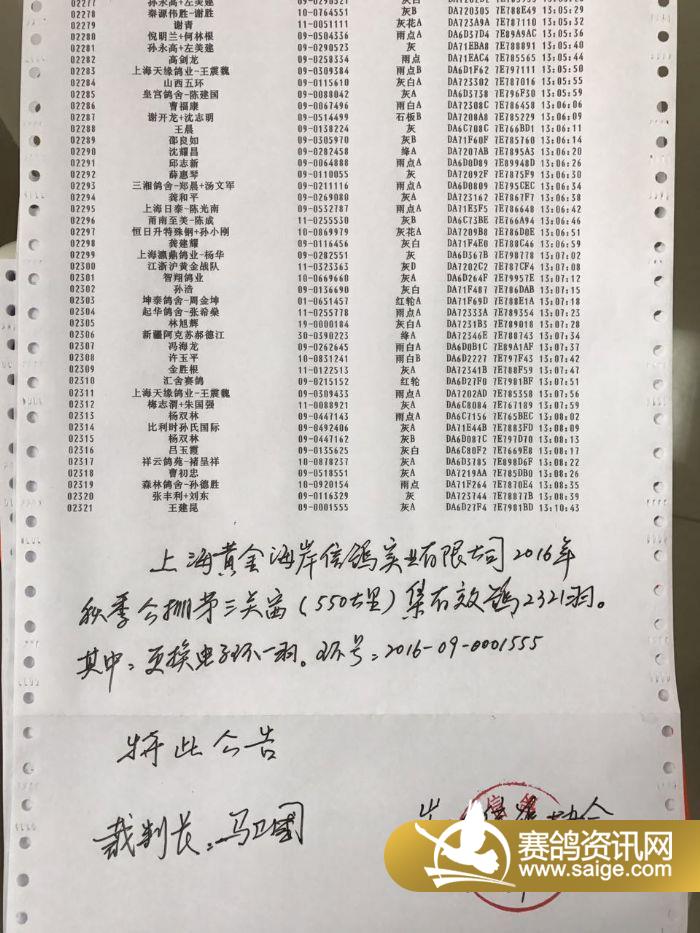 02277 孙永高+左美建 09-0290521 灰白
02278 秦源伟胜-谢胜 10-0764551 灰B DA720305 7E788E49 13:05:29
02279 谢青 11-0051111 灰花A DA723A9A 7E787110 13:05:32
02280 倪明兰+何林根 09-0504336 雨点 DA6D37D4 7E89A9AC 13:05:36
02281 孙永高+左美建 09-0290523 灰 DA71EBA8 7E788891 13:05:40
02282 高剑龙 09-0258334 雨点 DA71EAC4 7E785565 13:05:44
02283 上海天缘鸽业-王震巍 09-0309384 雨点B DA6D1F62 7E797111 13:05:50
02284 山西五环 09-0115610 灰白A DA723302 7E787016 13:05:55
02285 皇宫鸽舍-陈建国 09-0088042 灰A DA6D3738 7E796F30 13:05:59
02286 曹福康 09-0067496 雨白A DA72308C 7E786458 13:06:06
02287 谢开龙+沈志明 09-0514499 石板B DA7208A8 7E785229 13:06:09
02288 王晨 09-0138224 灰 DA6C708C 7E766BD1 13:06:11
02289 邵良如 09-0305970 灰B DA71F60F 7E785760 13:06:14
02290 沈耀昌 09-0282458 绛A DA7207AB 7E7895A3 13:06:20
02291 邱志新 09-0064888 雨点A DA6D0D09 7E89948D 13:06:26
02292 薛惠琴 09-0110055 灰 DA72092F 7E7875F9 13:06:30
02293 三湘鸽舍-郑晨+汤文军 09-0211116 雨点A DA6D0809 7E795CEC 13:06:34
02294 龚和平 09-0269080 灰A DA723162 7E7867F7 13:06:38
02295 上海日泰-陈光南 09-0532787 雨点A DA71E3F5 7E786648 13:06:42
02296 甬南至美-陈成 11-0255530 灰B DA6C73BE 7E766A94 13:06:46
02297 恒日升特殊钢+孙小刚 10-0869979 灰花A DA7209B8 7E786D0E 13:06:51
02298 龚建耀 09-0116456 灰白 DA71F4E0 7E788C46 13:06:59
02299 上海瀛鼎鸽业-杨华 09-0282551 灰 DA6D367B 7E798778 13:07:02
02300 江浙沪黄金战队 11-0323363 灰D DA7202C2 7E787CF4 13:07:08
02301 智翔鸽业 10-0669660 灰A DA6D264F 7E79957E 13:07:12
02302 孙浩 09-0136690 灰白 DA71F487 7E786DAB 13:07:15
02303 坤泰鸽舍-周金坤 01-0651457 红轮A DA71F69D 7E788E1A 13:07:18
02304 起华鸽舍-张希燊 11-0255778 雨点A DA72333A 7E789354 13:07:23
02305 林旭辉 19-0000184 灰白A DA7231B3 7E789018 13:07:28
02306 新疆阿克苏郝德江 30-0390223 绛A DA72346E 7E788743 13:07:34
02307 冯海龙 09-0262645 雨白A DA6D0B1C 7E89A1AF 13:07:37
02308 许玉平 10-0831241 雨白B DA6D2227 7E797F43 13:07:42
02309 金胜根 11-0122513 灰A DA72341B 7E788F59 13:07:47
02310 汇舍赛鸽 09-0215152 红轮 DA6D27F0 7E7981BF 13:07:51
02311 上海天缘鸽业-王震巍 09-0309433 雨点A DA7202AD 7E785358 13:07:56
02312 梅志渭+朱国强 11-0088921 灰A DA6C8084 7E767189 13:07:59
02313 杨双林 09-0447143 雨点A DA6C7156 7E765BEC 13:08:02
02314 比利时孙氏国际 09-0492406 灰A DA71E44B 7E7883FD 13:08:09
02315 杨双林 09-0447162 灰B DA6D087C 7E797D70 13:08:13
02316 吕玉霞 09-0135625 灰白 DA6C80F2 7E7669E8 13:08:17
02317 祥云鸽苑-褚呈祥 10-0878237 灰A DA6D3785 7E898D6F 13:08:22
02318 曹初忠 09-0518551 灰A DA7219AA 7E785DB0 13:08:26
02319 森林鸽舍-孙德胜 10-0920154 雨点 DA71F264 7E7870E4 13:08:35
02320 张丰利+刘东 09-0116329 灰 DA723744 7E78877B 13:08:39
02321 王建昆 09-0001555 灰A DA6D27F4 7E7981BD 13:10:43
上海黄金海岸信鸽实业有限公司2016年
秋季公棚第三关赛(550公里)集有效鸽2321羽。
其中:更换电子环一羽。环号:2016-09-0001555
特此公告
裁判长:马卫国
赛鸽资讯网
www.saige.com